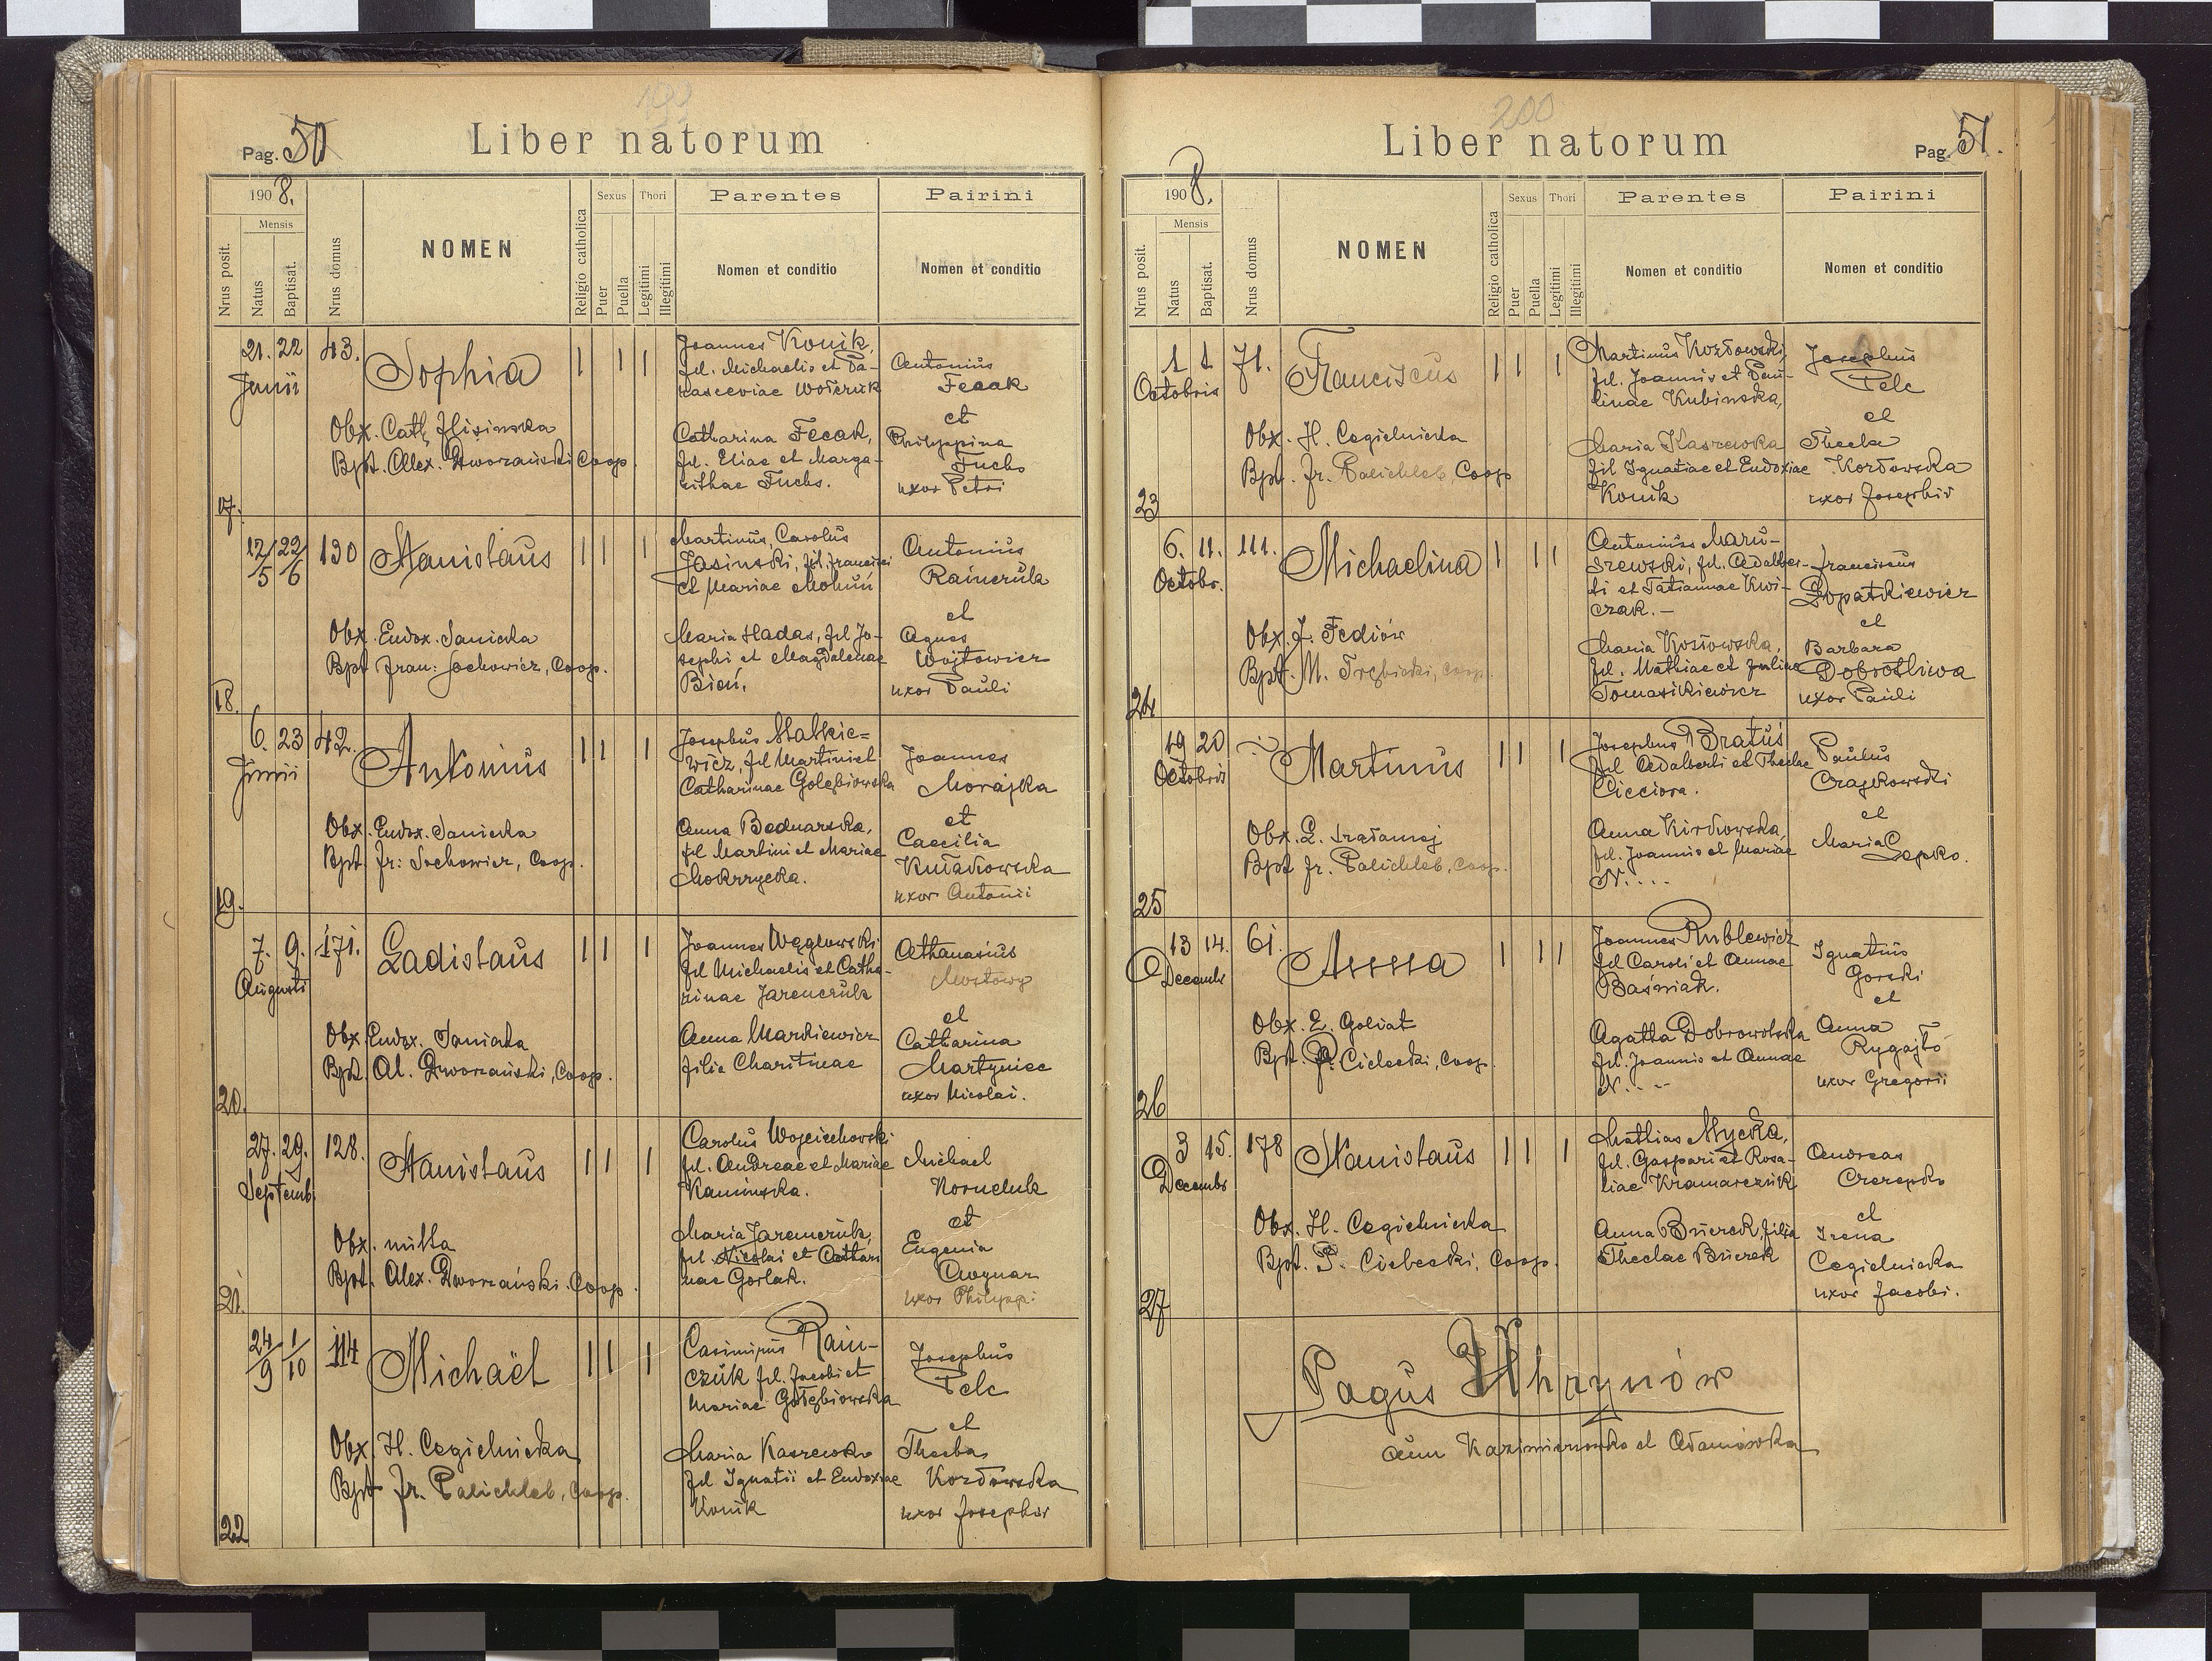 199
Pag. 50
Liber natorum
1908.
Mensis
Nrus posit.
Natus
Baptisat.
Nrus domus
NOMEN
Religio catholica
Sexus
Puer
Puella
Thori
Legitimi
Illegitimi
Parentes
Nomen et conditio
Pairini
Nomen et conditio
17.
21. 22
Junii
43.
Sophia
Obx. Cath.
Bpt. Alex. Dworzański Coop.
Joannes Konik,
fil. Michaelis et Pa-
rasceviae Wołczuk
Catharina Fecak,
fil. Eliae et Marga-
rithae Fuchs.
Antonius
Fecak
et
Philyppina
Fuchs
uxor Petri
18.
12/5 22/6
130
Stanislaus
Obx. Eudox. Sanicka
Bpt. Fran: Sochowicz, Coop.
Martinus, Carolus
Jasinski, fil. Francisci
et Mariae Mohuń
Maria Hadas, fil Jo-
sephi et Magdalenae
Bień,
Antonius
Rainczuk
et
Agnes
Wojtowicz
uxor Pauli
19.
6. 23
Junii
42.
Antonius
Obx. Eudox. Sanicka
Bpt. Fr: Sochowicz, Coop.
Josephus Małkie=
wicz, fil Martini et
Catharinae Golębiowska
Anna Bednarska,
fil Martini et Mariae
Mokrzycka.
Joannes
Morajka
et
Caecilia
Kułakowska
uxor Antonii
20.
7. 9.
Augusti
171.
Ladislaus
Obx. Eudox. Sanicka
Bpt. Al. Dworzański, Coop.
Joannes Węglowski
fil Michaelis et Catha-
rinae Jaremczuk
Anna Markiewicz
filia Charitneae
Athanasius
Mostowy
et
Catharina
Martyniec
uxor Nicolai.
21.
27. 29.
Septemb.
128.
Stanislaus
Obx. nulla
Bpt. Alex. Dworzański. Coop.
Carolus Wojciechowski
fil. Andreae et Mariae
Kaminska.
Maria Jaremczuk,
fil. Nicolai et Cathari
nae Gorlak.
Michael
Korneluk
et
Eugenia
uxor Philyppi
22
24/9 1/10
114
Michaël
Obx. H. Cegielnicka
Bpt Fr. Palichleb, Coop.
Casimirus Rain-
czuk fil. Jacobi et
Mariae Gołębiowska
Maria Kaszewska
fil Ignatii et Eudoxiae
Konik
Josephus
Pelc
et
Thecla
Kozłowska
uxor Josephi
200
Liber natorum
Pag. 51.
1908.
Mensis
Nrus posit.
Natus
Baptisat.
Nrus domus
NOMEN
Religio catholica
Sexus
Puer
Puella
Thori
Legitimi
Illegitimi
Parentes
Nomen et conditio
Pairini
Nomen et conditio
23
1 1
Octobris
71.
Franciscus
Obx. H. Cegielnicka
Bpt. Fr. Palichleb, Coop
Martinus Kozłowski,
fil. Joannis et Pau-
linae Kubinska,
Maria Kaszewska
fil Ignatiae et Eudoxiae
Konik
Josephus
Pelc
et
Thecla
Kozłowska
uxor Josephi
24
6. 11.
Octobr.
111.
Michaelina
Obx. J. Fediów
Bpt. M. Trębicki, coop.
Antonius Maru-
szewski, fil. Adalber-
ti et Tatiannae Kwi-
czak.-
Maria Kosłowska,
fil. Mathiae et Juliae
Tomasikiewicz
Franciscus
Łopatkiewicz
et
Barbara
Dobrotliwa
uxor Pauli
25
19 20
Octobris
Martinus
Obx. E.
Bpt Fr. Palichleb, Coop.
Josephus Bratuś
fil Adalberti et Theclae
Cieciora.
Anna Kirkowska,
fil. Joannis et Mariae
N....
Paulus
Czajkowski
et
Maria
Lepko.
26
13 14.
Decembr
61.
Anna
Obx. E. Goliat
Bpt. P. Cielecki, Coop.
Joannes Rublewicz
fil Caroli et Annae
Baśniak.
Agatha Dobrowolska
fil. Joannis et Annae
N....
Ignatius
Gorski
et
Anna
Rygajło
uxor Gregorii
27
3 15.
Decembr
178
Stanislaus
Obx. H. Cegielnicka
Bpt. P. Cielecki, Coop.
Mathias Mycka,
fil. Gaspari et Rosa-
liae Kramarczuk
Anna Burcek, filia
Theclae Burcek
Andreas
Czerepko
et
Irena
Cegielnicka
uxor Jacobi.
Pagus Uhrynów
cum Kazimierowka et Adamowka